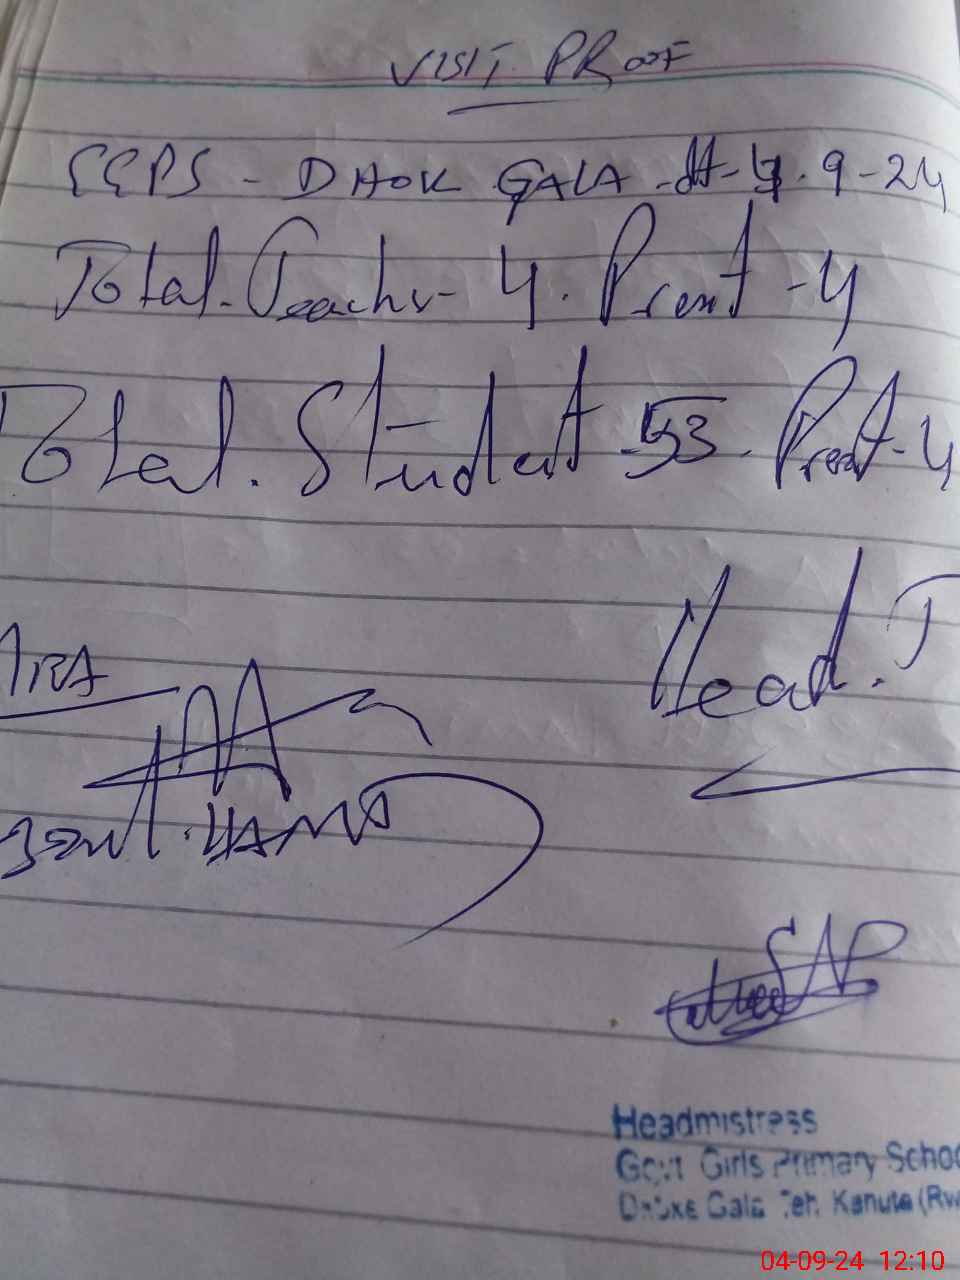 VISIT PROOF
GGPS - DHOK GALA - dt - 4 . 9 - 24
Total . Teachr - 4 . Presnt - 4
Total . Student - 53 . Presnt - 4
Head . T
Headmistress
Govt Girls Primary Schoo
Dhoke Gala Teh. Kahuta (Rw
04-09-24 12:10